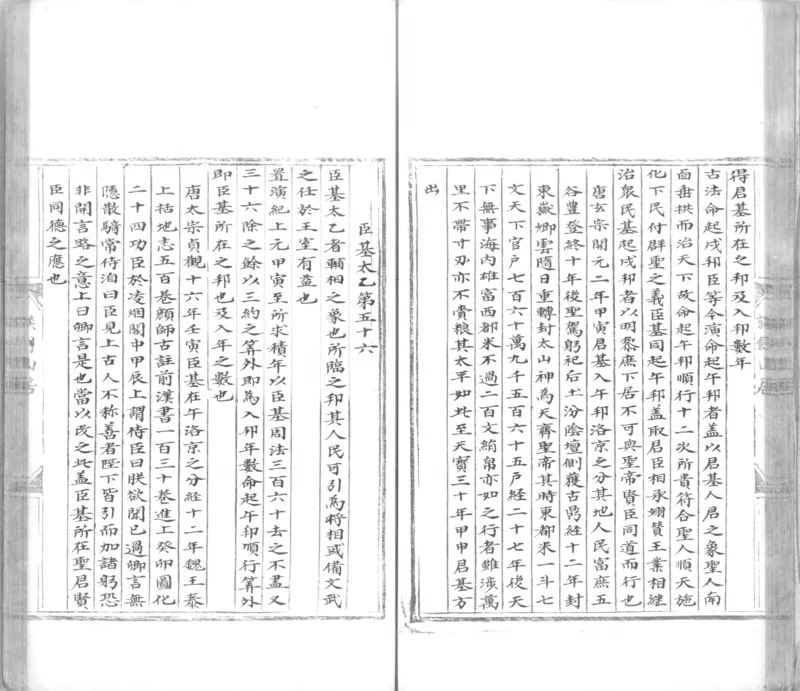 得君基所在之邦及入邦數年
古法命起戌邦臣等今演命起午邦者蓋以君基人君之象聖人南
面垂拱而治天下故命起午邦順行十二次所貴符合聖人順天施
化下民付群聖之義臣基同起午邦蓋取君臣相承翊贊王業相繼
治衆民基起戌邦者以明黎庶下居不可與聖帝賢臣同道而行也
唐玄宗開元二年甲寅君基入午邦洛京之分其地人民富庶五
谷豐登終十年後聖駕躬祀后土汾陰壇側獲古鼎經十二年封
東嶽卿雲隨日重轉封太山神為天齊聖帝其時東都米一斗七
文天下官户七百六十萬九千五百六十五戶經二十七年後天
下無事海内雄富西都米不過二百文絹帛亦如之行者雖涉萬
里不帶寸刃亦不賫粮其太平如此至天寶三十年甲申君基方
出
臣基太乙第五十六
臣基太乙者輔相之象也所臨之邦其人民可引為將相或備文武
之任於王室有益也
置演紀上元甲寅至所求積年以臣基周法三百六十去之不盡又
三十六除之餘以三約之筭外即為入邦年數命起午邦順行筭外
即臣基所在之邦也及入年之數也
唐太宗貞觀十六年壬寅臣基在午洛京之分經十二年魏王泰
上括地志五百卷顔師古註前漢書一百三十卷進上癸卯圖化
二十四功臣於凌烟閣中甲辰上謂侍臣曰朕欲聞已過卿言無
隱散騎常侍洎曰臣見上古人不称善者陛下皆引而加諸躬恐
非開言路之意上曰卿言是也當以改之此蓋臣基所在聖君賢
臣同德之應也